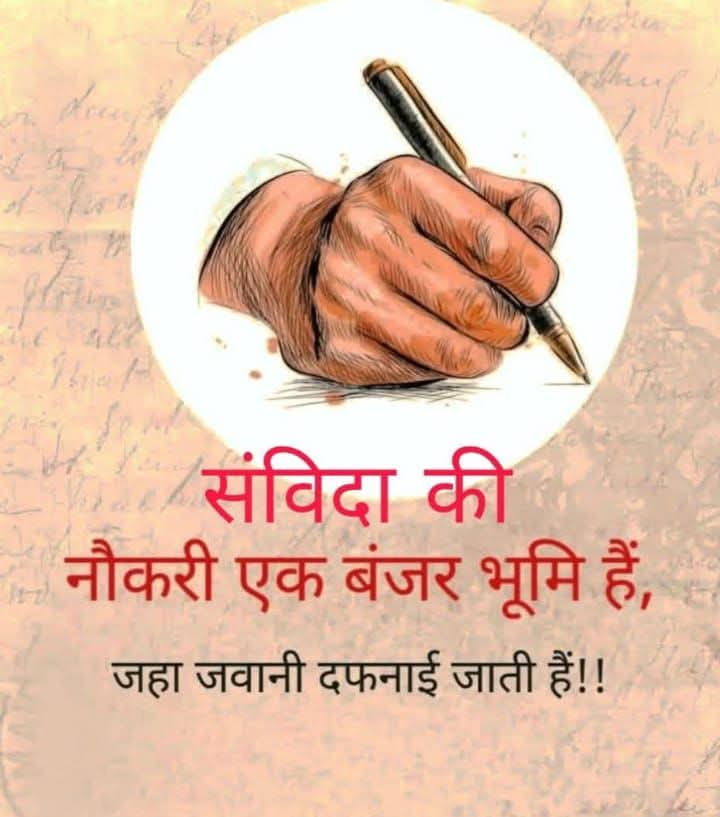 संविदा की
नौकरी एक बंजर भूमि हैं,
जहा जवानी दफनाई जाती हैं!!